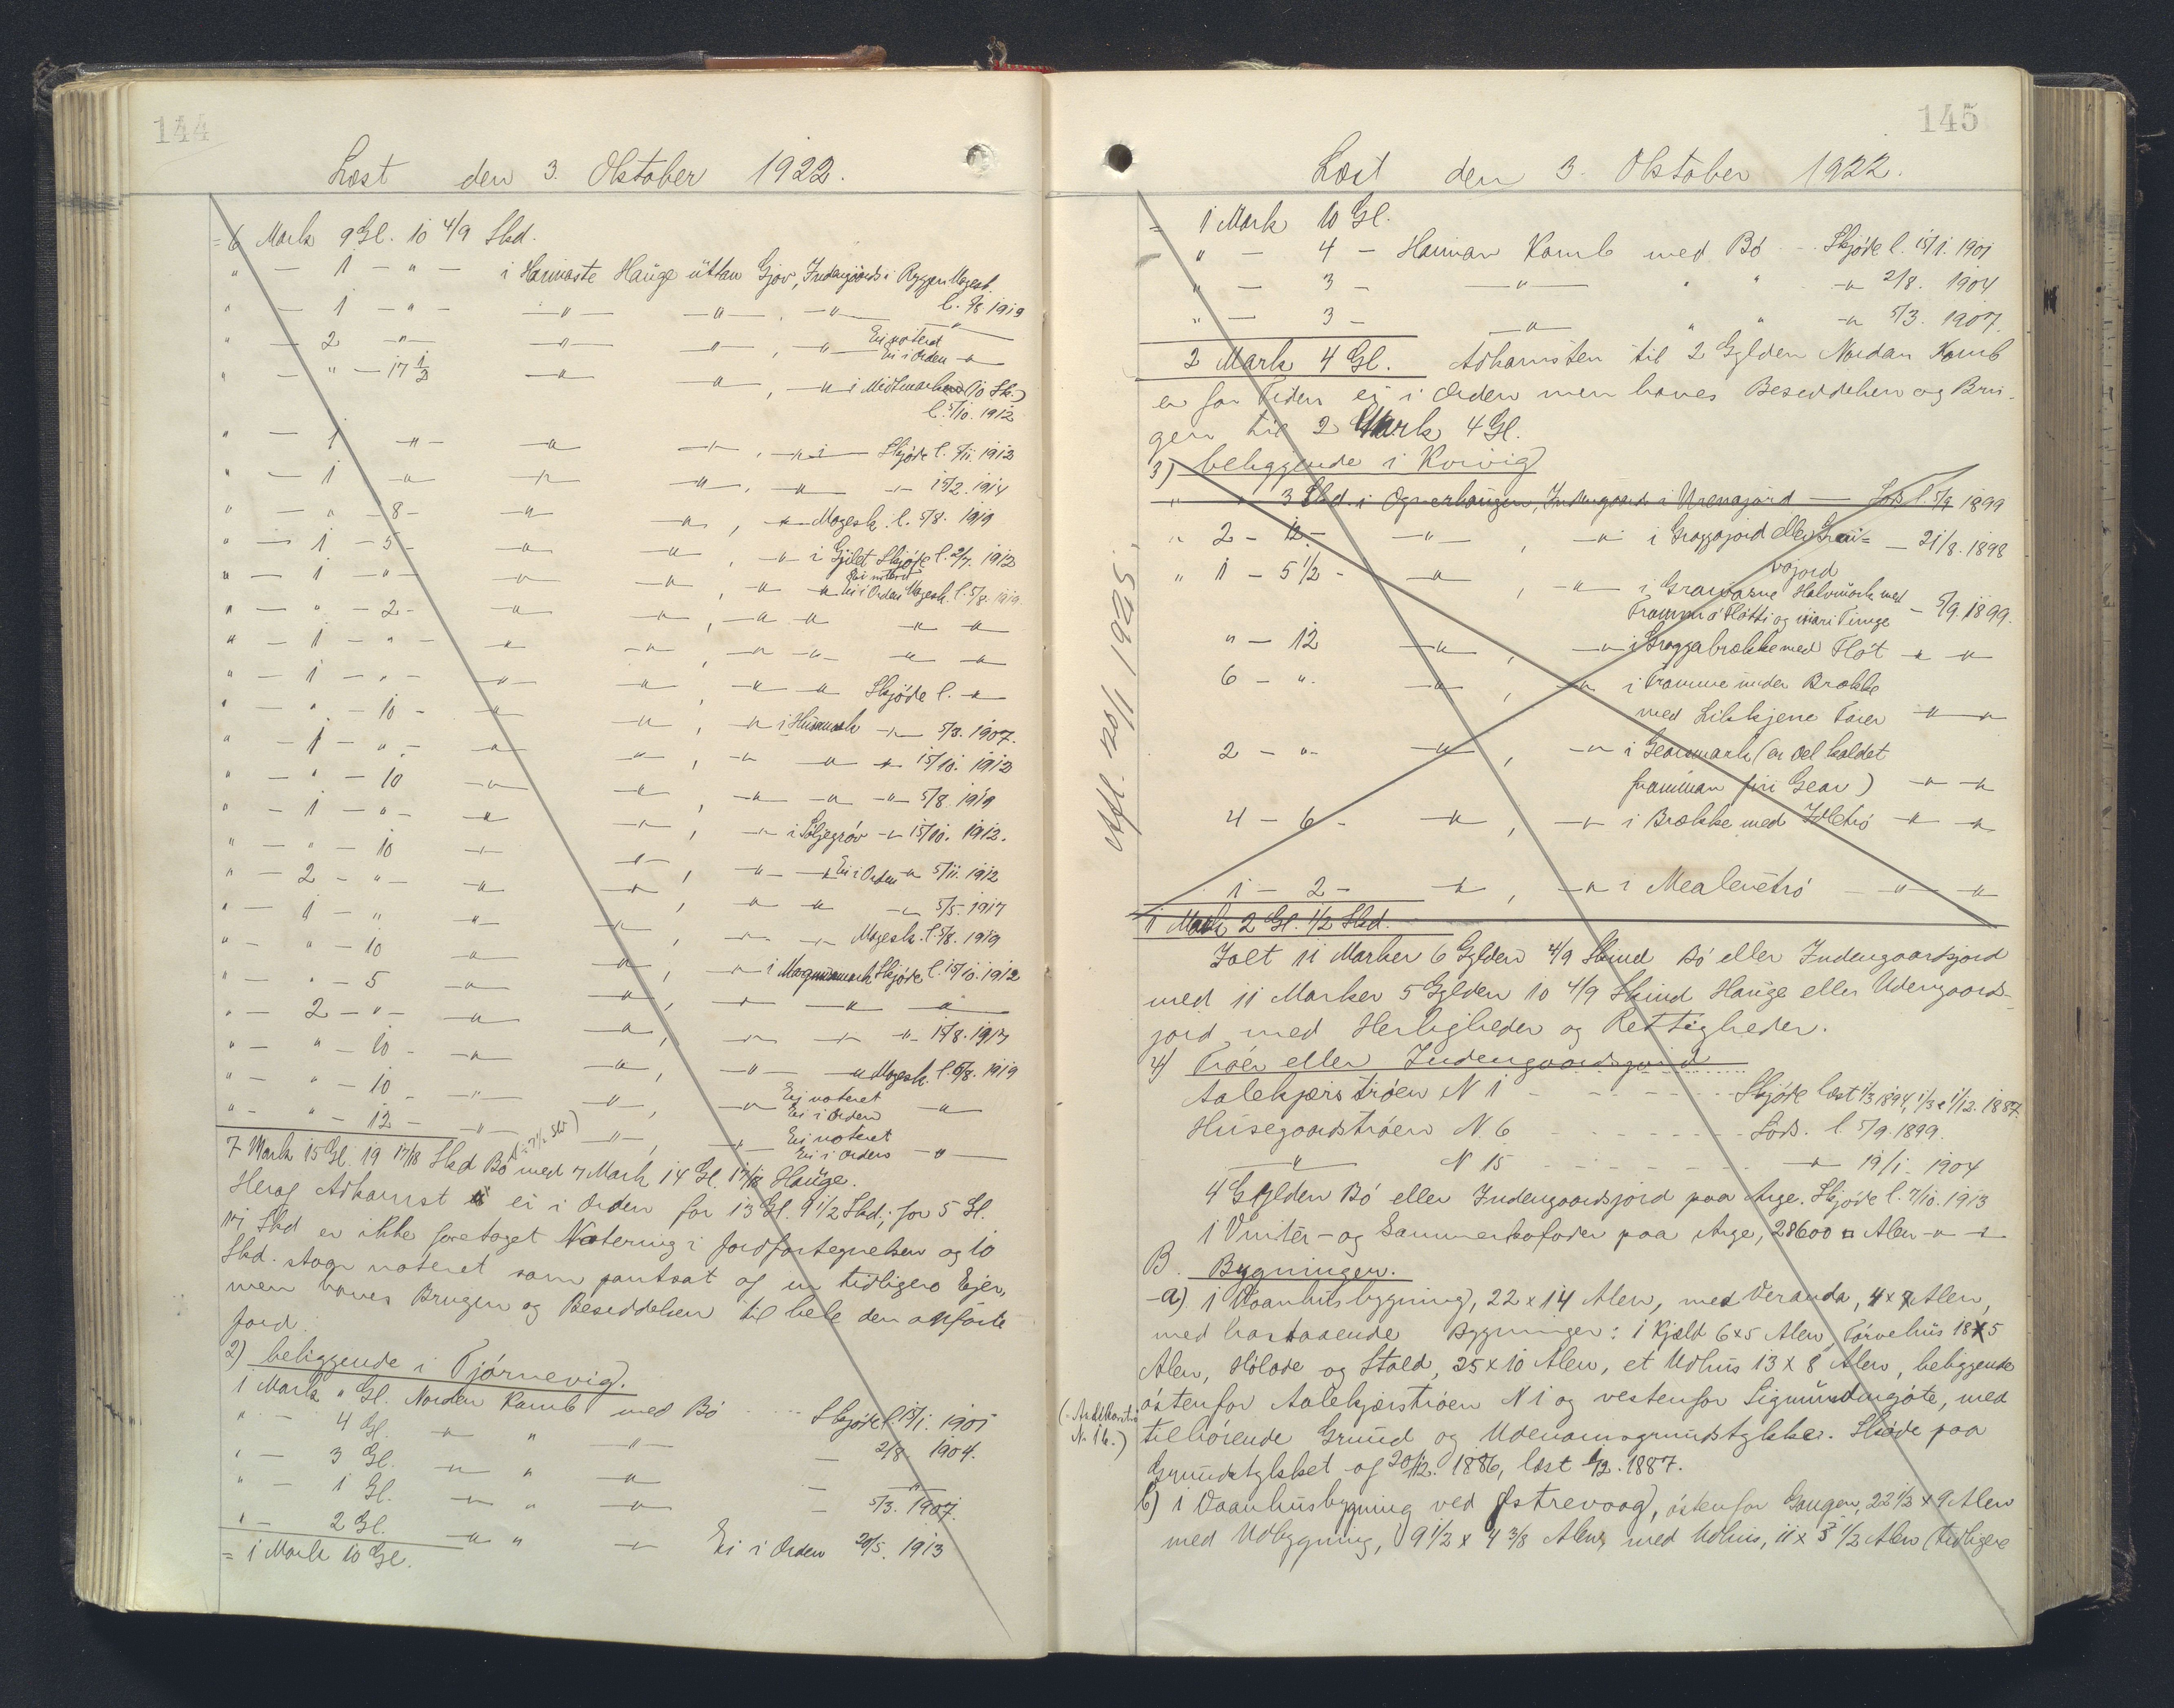 144
Læst den 3. Oktober 1922.
= 6 Mark 9 Gl. 10 4/9 Skd.
" — 1 — " — i Hannaste Hauge üttan Gjov, Indengaards i Ryggen Magesk.
l. 5/8 1919
" — 1 — " — — " — — " — , — " — "
Ei noteret
" — 2 — " — — " — — " — , — " Ei i Orden — " —
" — " — 17 1/2 — " — — " — , — " i Midtmarken (10 Sk.)
l. 5/10. 1912
" — 1 — " — — " — — " — , — " — Skjöde l. 5/11. 1912
" — 1 — " — — " — — " — , — " — — " — 15/2. 1914
" — " — 8 — — " — — " — , — " — Magesk. l. 5/8. 1919
" — 1 — 5 — — " — — " — , — " i Gjilet Skjöde l. 2/7. 1912
Ei noteret
" — 1 — " — — " — — " — , — " Ei i Orden Magesk. l. 5/8. 1919
" — " — 2 — — " — — " — , — " — " — " — "
" — 1 — " — — " — — " — , — " — " — " — "
" — 1 — " — — " — — " — , — " — " Skjöde l. — " —
" — " — 10 — — " — — " — , — " i Husmark — " — 5/3. 1907.
" — 1 — " — — " — — " — , — " — " — " 15/10. 1912
" — " — 10 — " — — " — , — " — " — " — 5/8. 1919
" — 1 — " — — " — — " — , — " i Söljegróv — " 15/10. 1912.
" — " — 10 — " — — " — , — " — " Ei i Orden " 5/11. 1912
" — 2 — " — — " — — " — , — " — " — " 5/5. 1917
" — 1 — " — " — — " — , — " — " Magesk. l. 5/8. 1919
" — " — 10 — " — — " — , — " i Magnusmark Skjöde l. 15/10. 1912
" — " — 5 — " — — " — , — " — " — "
" — 2 — " — — " — — " — , — " — " — " 15/8. 1917
" — " — 10 — — " — — " — , — " — " Magesk. l. 5/8. 1919
" — " — 10 — — " — — " — , — " Ei noteret Ei i Orden — " —
" — " — 12 — — " — — " — , — " Ei noteret Ei i Orden — " —
7 Mark 15 Gl. 19 17/18 Skd Bó med 7 Mark 14 Gl. 17/18 Hauge.
Heraf Adkomst ei i Orden for 13 Gl. 9 1/2 Skd; for 5 Gl.
Skd er ikke foretaget Notering i Jordfortegnelsen og 10
Skd. staar noteret som pantsat af en tidligere Ejer,
men haves Brugen og Besiddelsen til hele den anförte
Jord.
2) beliggende i Tjörnevig.
1 Mark " Gl. Norden Kamb med Bó — Skjöde l. 15/1. 1901
" — 4 Gl. — " — " — " — — 2/8 1904.
" — 3 Gl. — " — " — " — — "
" — 1 Gl. — " — " — " — — 5/3. 1907.
" — 2 Gl. — " — " — " Ei i Orden 20/5. 1913
= 1 Mark 10 Gl.
145
Læst den 3. Oktober 1922.
= 1 Mark 10 Gl.
" — 4 — Hannan Kamb med Bó — Skjöde l. 15/1. 1901
" — 3 — — " — " " — " 2/8. 1904
" — 3 — — " — " " — " 5/3. 1907.
2 Mark 4 Gl. Adkomsten til 2 Gylden Nordan Kamb
er for Tiden ei i Orden men haves Besiddelsen og Bru-
gen til 2 Mark 4 Gl.
3) beliggende i Kvivig
" " 3 Skd. i Ognerhaugen, Indengaards i Urenajord — Lods l. 5/9 1899
" 2 — 12 — — " — , — " i Groggajord eller Grai- — 21/8. 1898
vajord
" 1 — 5 1/2 — — " — , — " — i Graivarne Halvmark med
Frammi á Flötti og innari Tunge — 5/9. 1899.
" — 12 — " — , — " i Groggabrække med Flöt — " — "
6 — " — " — , — " i Tromme under Brække
med Lihkjene Töier — " — "
2 — " — " — , — " i Gearsmark (en Del kaldet
framman firi Gear) — " — "
4 — 6 — — " — , — " i Brække med Tóltró — " — "
1 — 2 — — " — , — " i Mealevetró — " — "
11 Mark 2 Gl. 1/2 Skd.
Ialt 11 Marker 6 Gylden 4/9 Skind Bó eller Indengaardsjord
med 11 Marker 5 Gylden 10 4/9 Skind Hauge eller Udengaards-
jord med Herligheder og Rettigheder.
4) Tróer eller Indengaardsjord
Aalekjærstróen N 1 — — — Skjöde læst 1/3 1894, 1/3 & 1/12. 1887
Husegaardstróen N. 6 — — — Lods. l. 5/9. 1899.
— " — N 15 — — — — " — 19/1. 1904
4 Gylden Bó eller Indengaardsjord paa Arge. Skjöde l. 7/10. 1913
1 Vinter- og Sommerkofoder paa Arge, 28600 □ Alen — " — "
B. Bygninger.
a) 1 Vaanhusbygning, 22 x 14 Alen, med Veranda, 4 x 7 Alen,
med hosstaaende Bygninger: 1 Kjæld 6x5 Alen, Törvehus 18x5
Alen, Hölade og Stald, 25 x 10 Alen, et Udhus 13 x 8 Alen, beliggende
östenfor Aalekjærstróen N 1 og vestenfor Sigmundargöte, med
(Artikkontr. N. 16.)
tilhörende Grund og Udenomsgrundstykker. Sköde paa
Grundstykket af 20/12. 1886, læst 1/12. 1887.
b) 1 Vaanhusbygning ved Östrevaag, östenfor Gaugen, 22 1/2 x 9 Alen
med Udbygning, 9 1/2 x 4 3/8 Alen, med Udhus, 11 x 3 1/2 Alen (tidligere
Afl. 20/1 1925.